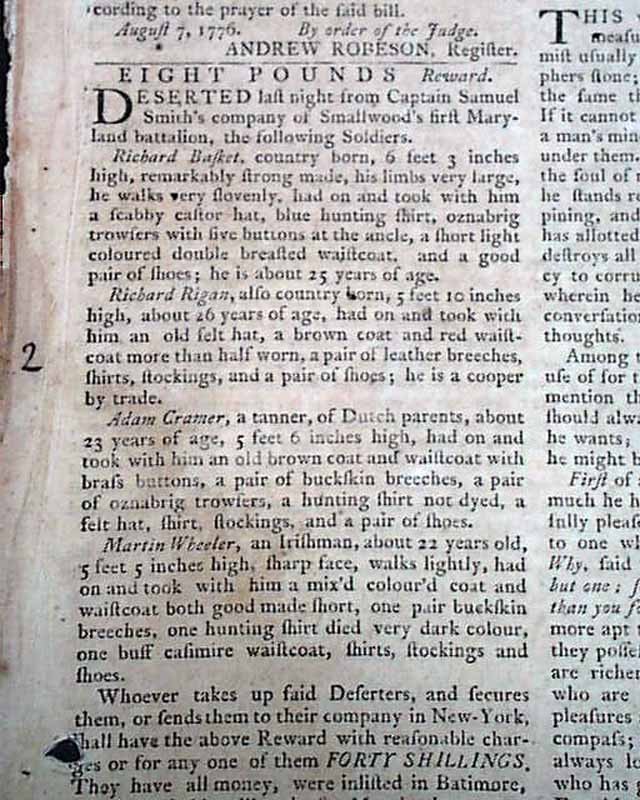 cording to the prayer of the ſaid bill.
Auguſt 7, 1776. By order of the Judge.
ANDREW ROBESON, Regiſter.
EIGHT POUNDS Reward.
DESERTED laſt night from Captain Samuel
Smith's company of Smallwood's firſt Mary-
land battalion, the following Soldiers.
Richard Baſket, country born, 6 feet 3 inches
high, remarkably ſtrong made, his limbs very large,
he walks very ſlovenly, had on and took with him
a ſcabby caſtor hat, blue hunting ſhirt, oznabrig
trowſers with five buttons at the ancle, a ſhort light
coloured double breaſted waiſtcoat, and a good
pair of ſhoes; he is about 25 years of age.
Richard Rigan, alſo country born, 5 feet 10 inches
high, about 26 years of age, had on and took with
him an old felt hat, a brown coat and red waiſt-
coat more than half worn, a pair of leather breeches,
ſhirts, ſtockings, and a pair of ſhoes; he is a cooper
by trade.
2
Adam Cramer, a tanner, of Dutch parents, about
23 years of age, 5 feet 6 inches high, had on and
took with him an old brown coat and waiſtcoat with
braſs buttons, a pair of buckſkin breeches, a pair
of oznabrig trowſers, a hunting ſhirt not dyed, a
felt hat, ſhirt, ſtockings, and a pair of ſhoes.
Martin Wheeler, an Iriſhman, about 22 years old,
5 feet 5 inches high, ſharp face, walks lightly, had
on and took with him a mix'd colour'd coat and
waiſtcoat both good made ſhort, one pair buckſkin
breeches, one hunting ſhirt died very dark colour,
one buff caſimire waiſtcoat, ſhirts, ſtockings and
ſhoes.
Whoever takes up ſaid Deſerters, and ſecures
them, or ſends them to their company in New-York,
ſhall have the above Reward with reaſonable char-
ges or for any one of them FORTY SHILLINGS.
They have all money, were inliſted in Batimore,
THIS
meaſu
miſt uſually
phers ſtone;
the ſame th
If it cannot
a man's min
under them.
the ſoul of
he ſtands re
pining, and
has allotted
deſtroys all
cy to corru
wherein he
converſation
thoughts.
Among t
uſe of for t
mention th
ſhould alwa
he wants;
he might b
Firſt of
much he h
fully pleaſ
to one wh
Why, ſaid
but one; f
than you
more apt
they poſſeſ
are richer
who are
pleaſures
compaſs;
always lo
who has